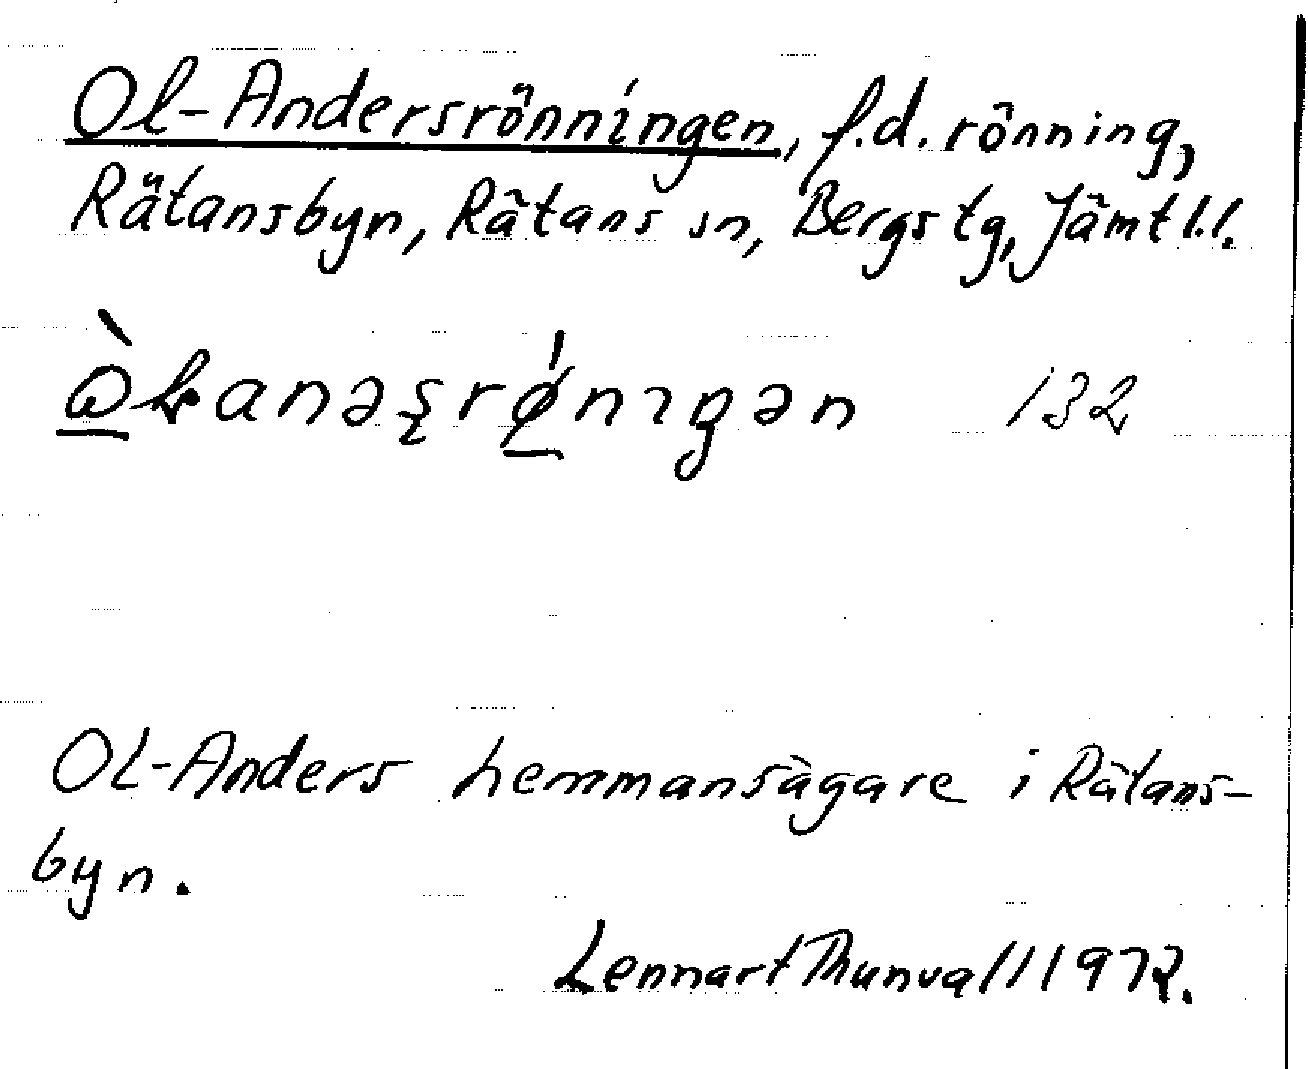 Ol-Andersrönningen, f.d. rönning,
Rätansbyn, Rätans sn, Bergs tg, Jämtl.l.
132
Ol-Anders hemmansägare i Rätans-
byn.
Lennart Thunvall 1972.